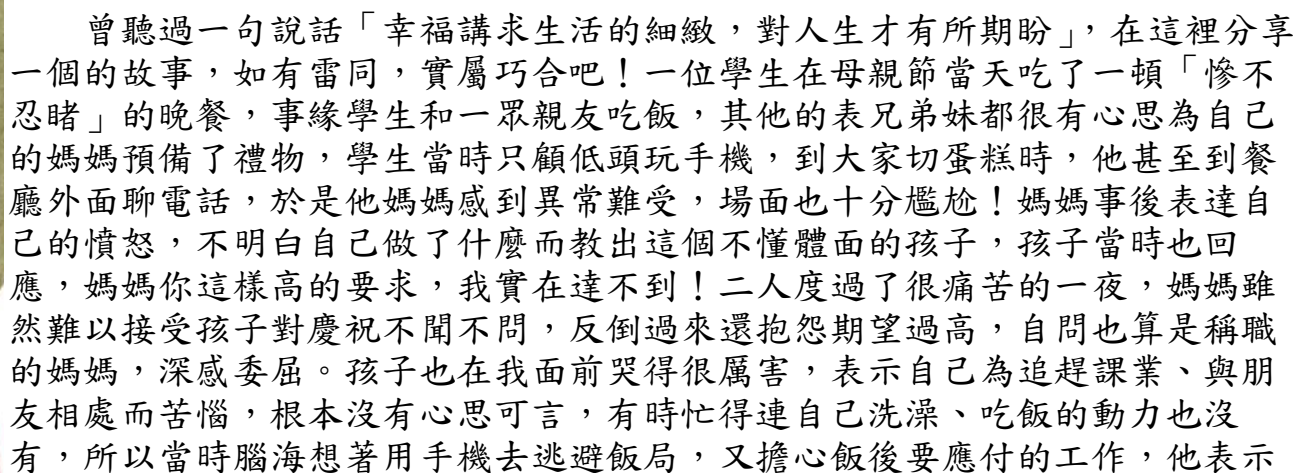 曾聽過一句說話「幸福講求生活的細緻，對人生才有所期盼」，在這裡分享
一個的故事，如有雷同，實屬巧合吧！一位學生在母親節當天吃了一頓「慘不
忍睹」的晚餐，事緣學生和一眾親友吃飯，其他的表兄弟妹都很有心思為自己
的媽媽預備了禮物，學生當時只顧低頭玩手機，到大家切蛋糕時，他甚至到餐
廳外面聊電話，於是他媽媽感到異常難受，場面也十分尷尬！媽媽事後表達自
己的憤怒，不明白自己做了什麼而教出這個不懂體面的孩子，孩子當時也回
應，媽媽你這樣高的要求，我實在達不到！二人度過了很痛苦的一夜，媽媽雖
然難以接受孩子對慶祝不聞不問，反倒過來還抱怨期望過高，自問也算是稱職
的媽媽，深感委屈。孩子也在我面前哭得很厲害，表示自己為追趕課業、與朋
友相處而苦惱，根本沒有心思可言，有時忙得連自己洗澡、吃飯的動力也沒
有，所以當時腦海想著用手機去逃避飯局，又擔心飯後要應付的工作，他表示